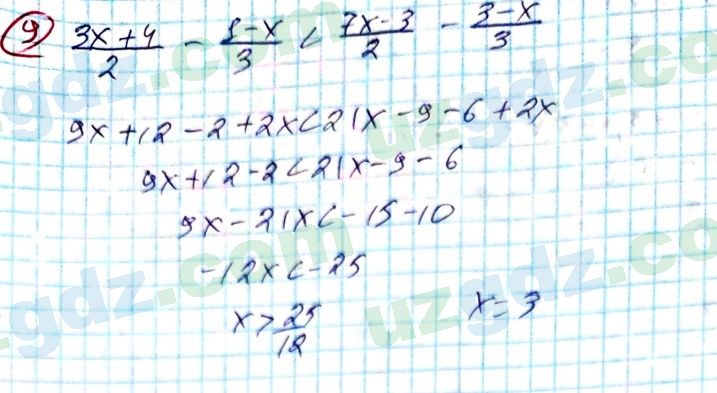 9) (3x+4)/2 - (1-x)/3 < (7x-3)/2 - (3-x)/3
9x+12-2+2x<21x-9-6+2x
9x+12-2<21x-9-6
9x-21x<-15-10
-12x<-25
x>25/12 x=3
uzgdz.com